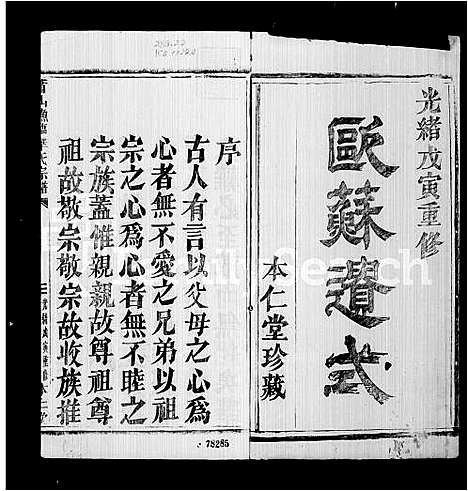 光緒戊寅重修
歐蘇遺式
本仁堂珍藏
序
古人有言以父母之心爲
心者無不愛之兄弟以祖
宗之心爲心者無不睦之
宗族蓋惟親親故尊祖尊
祖故敬宗敬宗故收族推
氏宗譜
光緒戊寅重修
78265